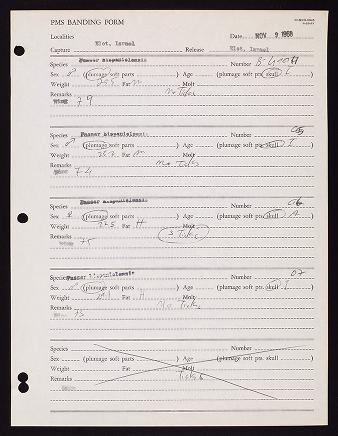 PMS BANDING FORM
Localities Date NOV 9 1968
Capture Elat, Israel Release Elat, Israel
Species Passer hispaniolensis Number
Sex ♂ (plumage soft parts ) Age (plumage soft pts. skull I )
Weight Fat Molt
Remarks No Ticks
Wing 79
Species Passer hispaniolensis Number 05
Sex ♂ (plumage soft parts ) Age (plumage soft pts. skull I )
Weight Fat M Molt
Remarks No Ticks
Wing 74
Species Passer hispaniolensis Number 06
Sex (plumage soft parts ) Age (plumage soft pts. skull A )
Weight Fat H Molt
Remarks 3 Ticks
Wing 75
Species Passer hispaniolensis Number 07
Sex ♂ (plumage soft parts ) Age (plumage soft pts. skull I )
Weight Fat H Molt
Remarks No Ticks
75
Species Number
Sex (plumage soft parts ) Age (plumage soft pts. skull )
Weight Fat Molt
Remarks Ticks